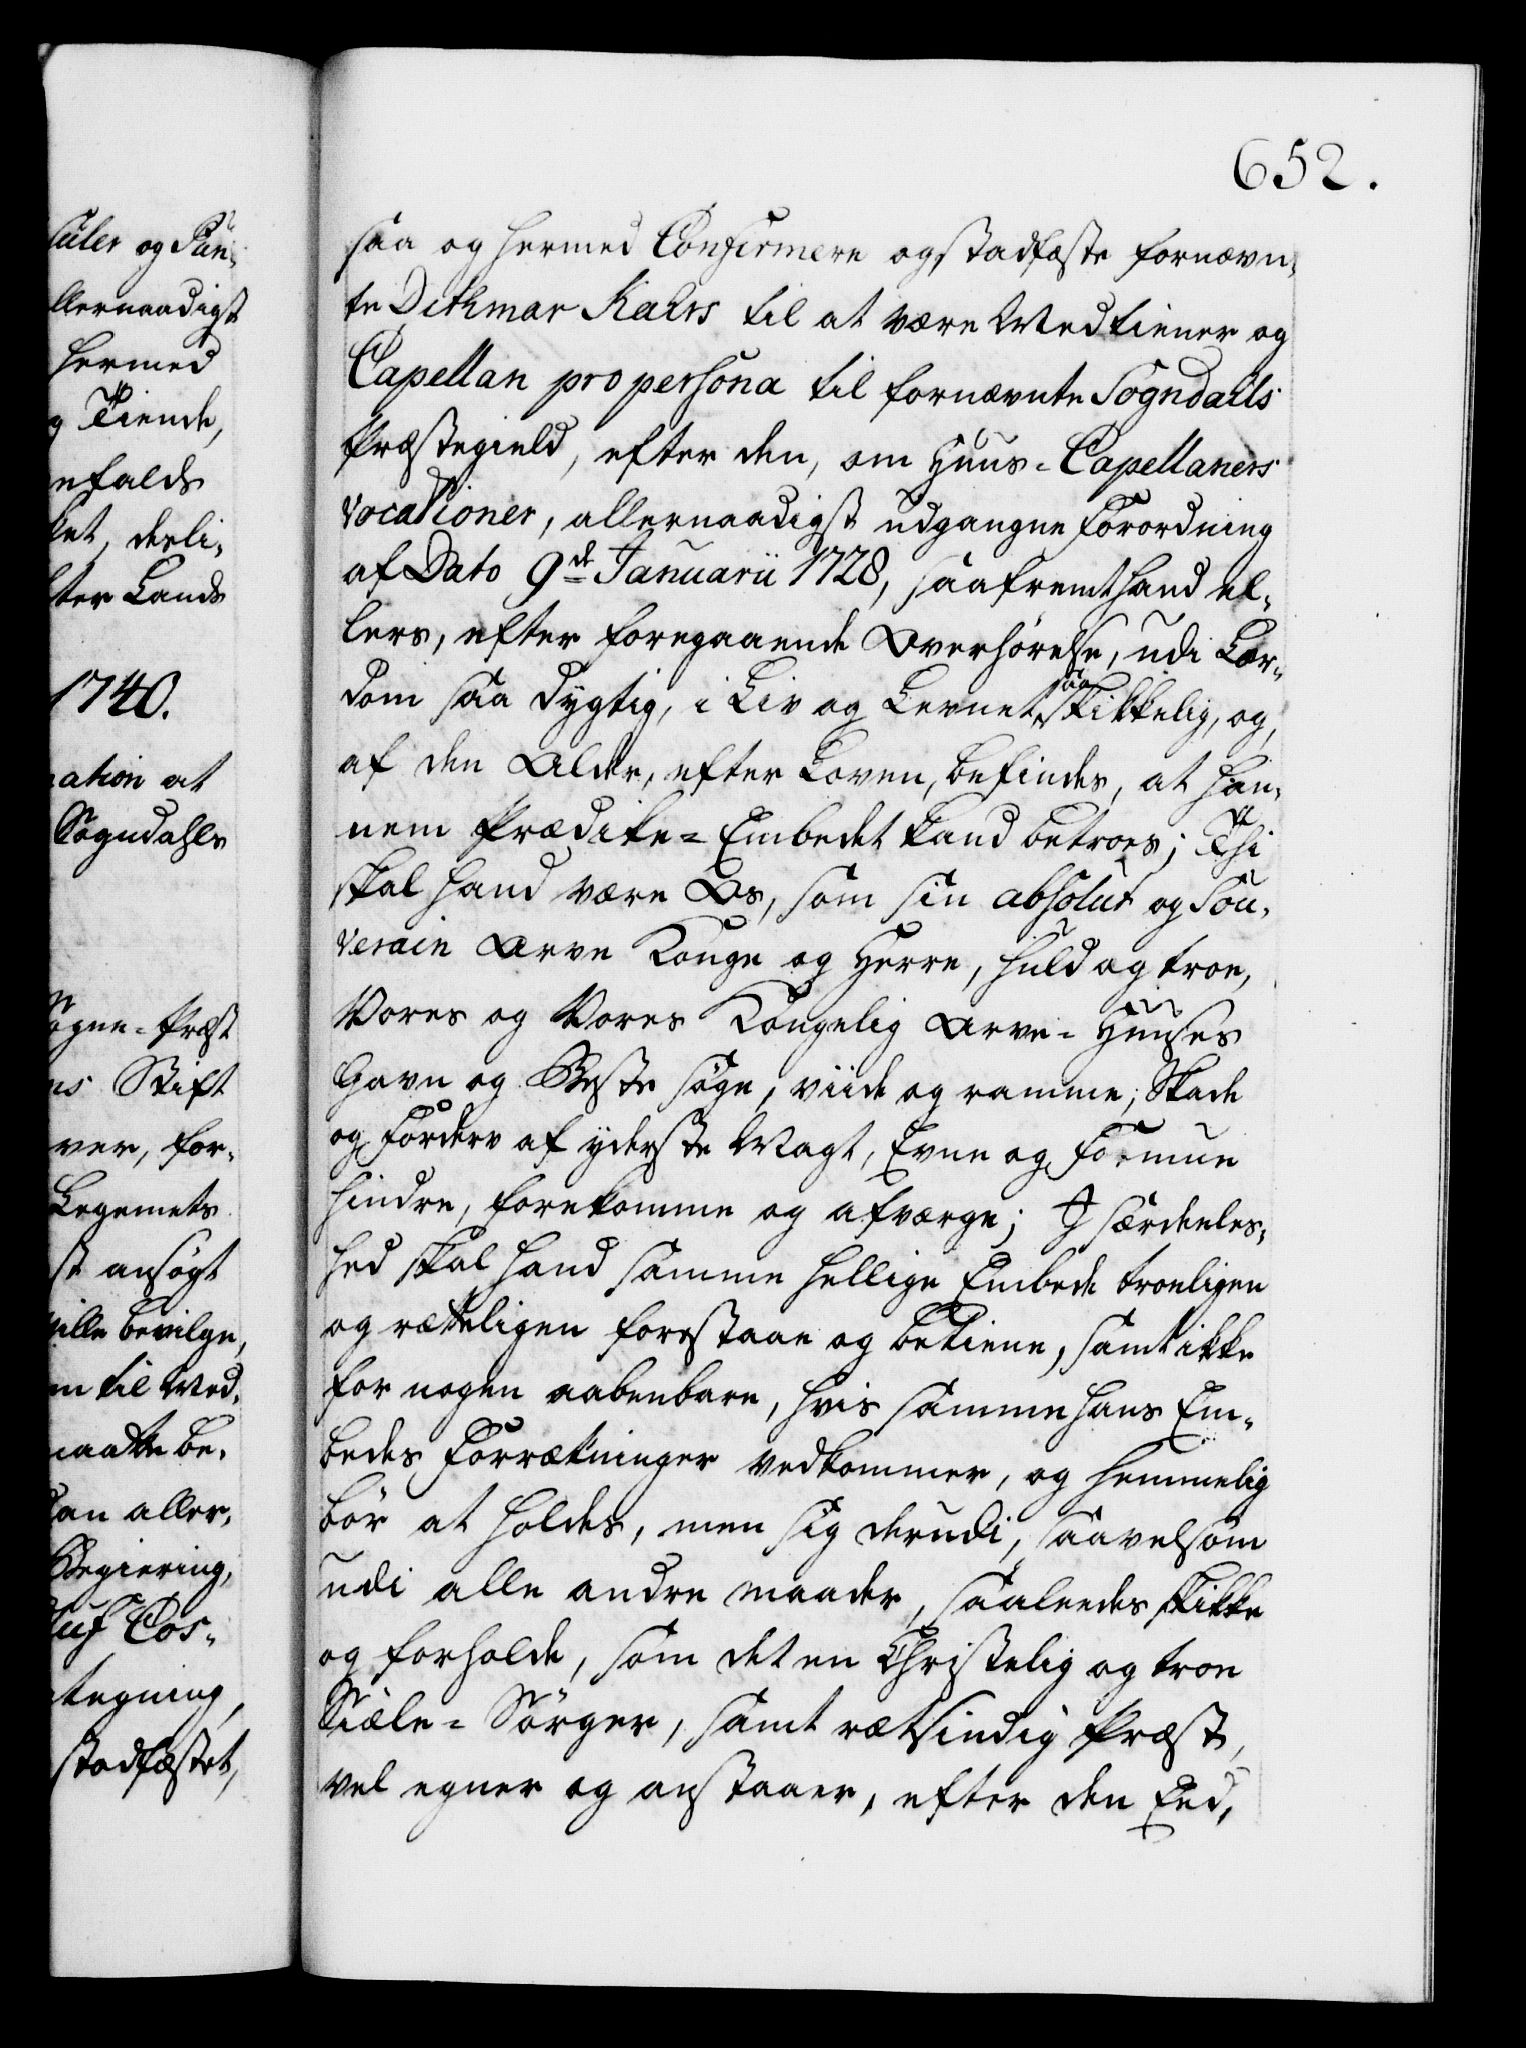 süler og Pün-
llernaadigst
hermed
g Tiende,
nfalds
ket, derli-
ter Lands
1740.
ation at
Sogndahls
ogne-Præst
ns Stift
ver, for-
Legemets
st ansøgt
ville bevilge,
m til Med-
maatte be-
an aller-
Regiering,
luf Cos-
ategning,
stadfæstet,
652.
saa og hermed Confirmere og stadfæste fornævn-
te Dithmar Kahrs til at være Medtiener og
Capellan pro persona til fornævnte Sogndahls
Præstegield, efter den, om Huus-Capellaners
vocationer, allernaadigst udgangne Forordning
af Dato 9de Januarii 1728, saafremt hand el-
lers, efter foregaaende Overhørelse, udi Lær-
dom saa dygtig, i Liv og Levnet saa skikkelig, og,
af den Alder, efter Loven, befindes, at han-
nem Prædike-Embedet kand betroes; Thi
skal hand være Os, som sin absolut og Sou-
verain Arve Konge og Herre, huld og troe,
Vores og Vores Kongelig Arve-Huuses
Gavn og Beste søge, viide og ramme, Skade
og Forderv af yderste Magt, Evne og Formue
hindre, forekomme og afværge; I særdeeles-
hed skal hand samme hellige Embede troeligen
og rætteligen forestaae og betiene, samt ikke
for nogen aabenbare, hvis samme hans Em-
bedes Forrætninger vedkommer, og hemmelig
bør at holdes, men sig derudi, saavelsom
udi alle andre maader, saaleedes skikke
og forholde, som det en Christelig og troe
Siæle-Sørger, samt rætsindig Præst,
vel egner og anstaaer, efter den Eed,